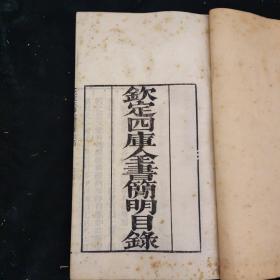 欽定四庫全書簡明目錄